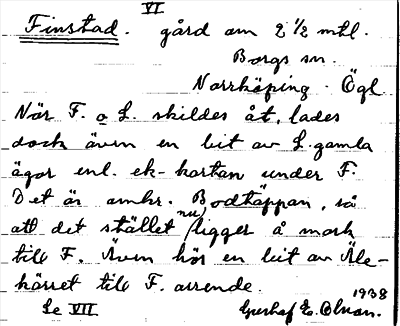 VI
Finstad. gård om 2 1/2 mtl.
Borgs sn.
Norrköping. Ögl
När F. o L. skildes åt, lades
dock även en bit av L. gamla
ägor enl. ek-kartan under F.
Det är omkr. Bodtäppan, så
att det stället nu ligger å mark
till F. Även hör en bit av Äle-
kärret till F. arrende.
1938
Se VII. Gustaf E. Olsson.